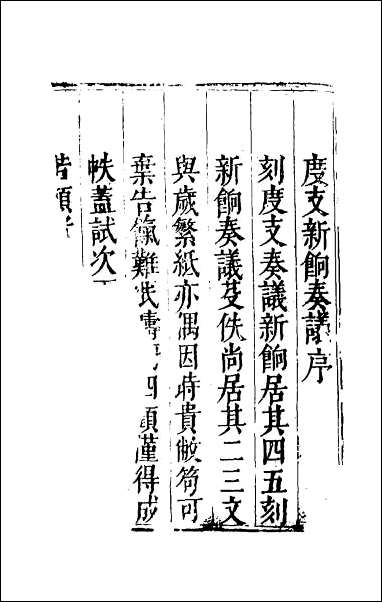 度支新餉奏議序
刻度支奏議新餉居其四五刻
新餉奏議芟佚尚居其二三文
與歲繁紙亦偶因時貴敝笥可
棄告餼難
四頭僅得成
帙蓋試次